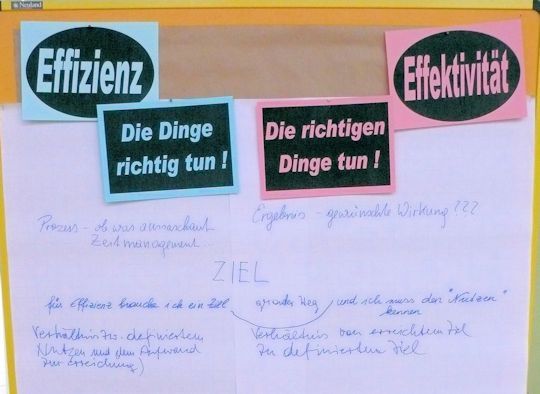 Neuland
Effizienz
Effektivität
Die Dinge
richtig tun !
Die richtigen
Dinge tun !
Prozess - ob was ausschaut
Zeitmanagement...
Ergebnis - gewünschte Wirkung ???
ZIEL
für Effizienz brauche ich ein Ziel
Weg
und ich muss den "Nutzen"
kennen
Verhältnis zw. definiertem
Nutzen und dem Aufwand
zur Erreichung)
Verhältnis von erreichtem Ziel
zu definiertem Ziel